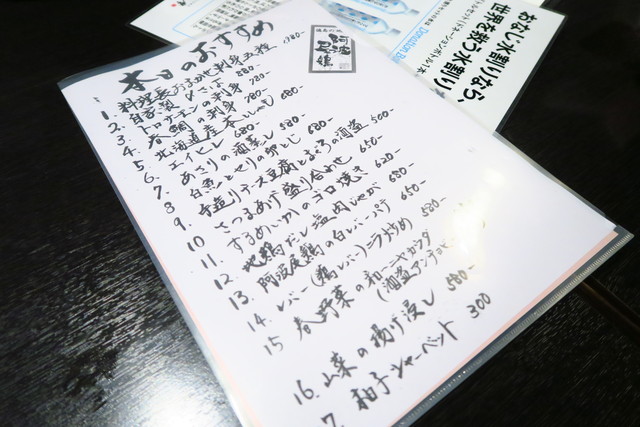 本日のおすすめ
阿波尾鶏
1. 料理長おまかせ刺身五種 1380-
2. 自家製〆さば 580-
3. トロサーモンの刺身 780-
4. 春鯛の刺身 780-
5. 北海道産本ししゃも 680-
6. エイヒレ 680-
7. あさりの酒蒸し 580-
8. 白魚とせりの卵とじ 680-
9. 寄造りチーズ豆腐とまぐろの酒盗 500-
10 さつまあげ盛り合わせ 650-
11. するめいかのゴロ焼き 620-
12. 地鶏だし塩肉じゃが 680-
13. 阿波尾鶏の白レバーパテ 650-
14. レバー(鶏レバー)ニラ炒め
15 春野菜の和ーニャカウダ
(酒盗アンチョビ
16. 山菜の揚げ浸し 580-
7. 柚子シャーベット 300
おなじ水割りなら、
世界を救う水割り
Donation Bo